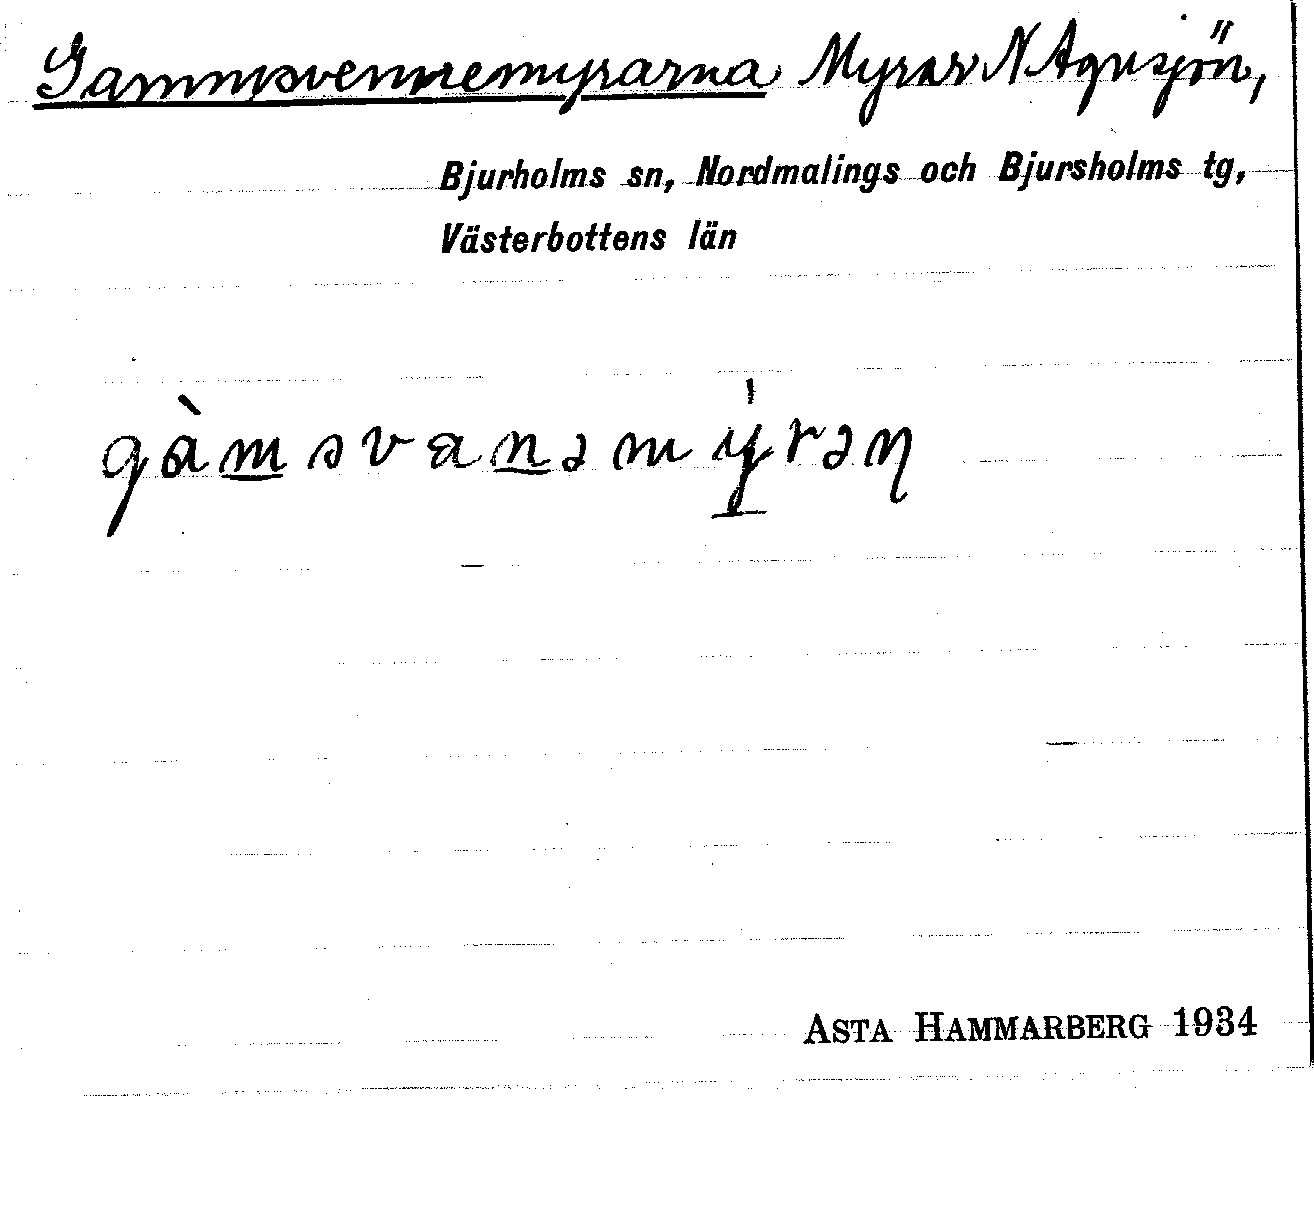 Gammsvennemyrarna Myrar N Agnsjön,
Bjurholms sn, Nordmalings och Bjursholms tg,
Västerbottens län
gàmsvanəmýrəɳ
ASTA HAMMARBERG 1934